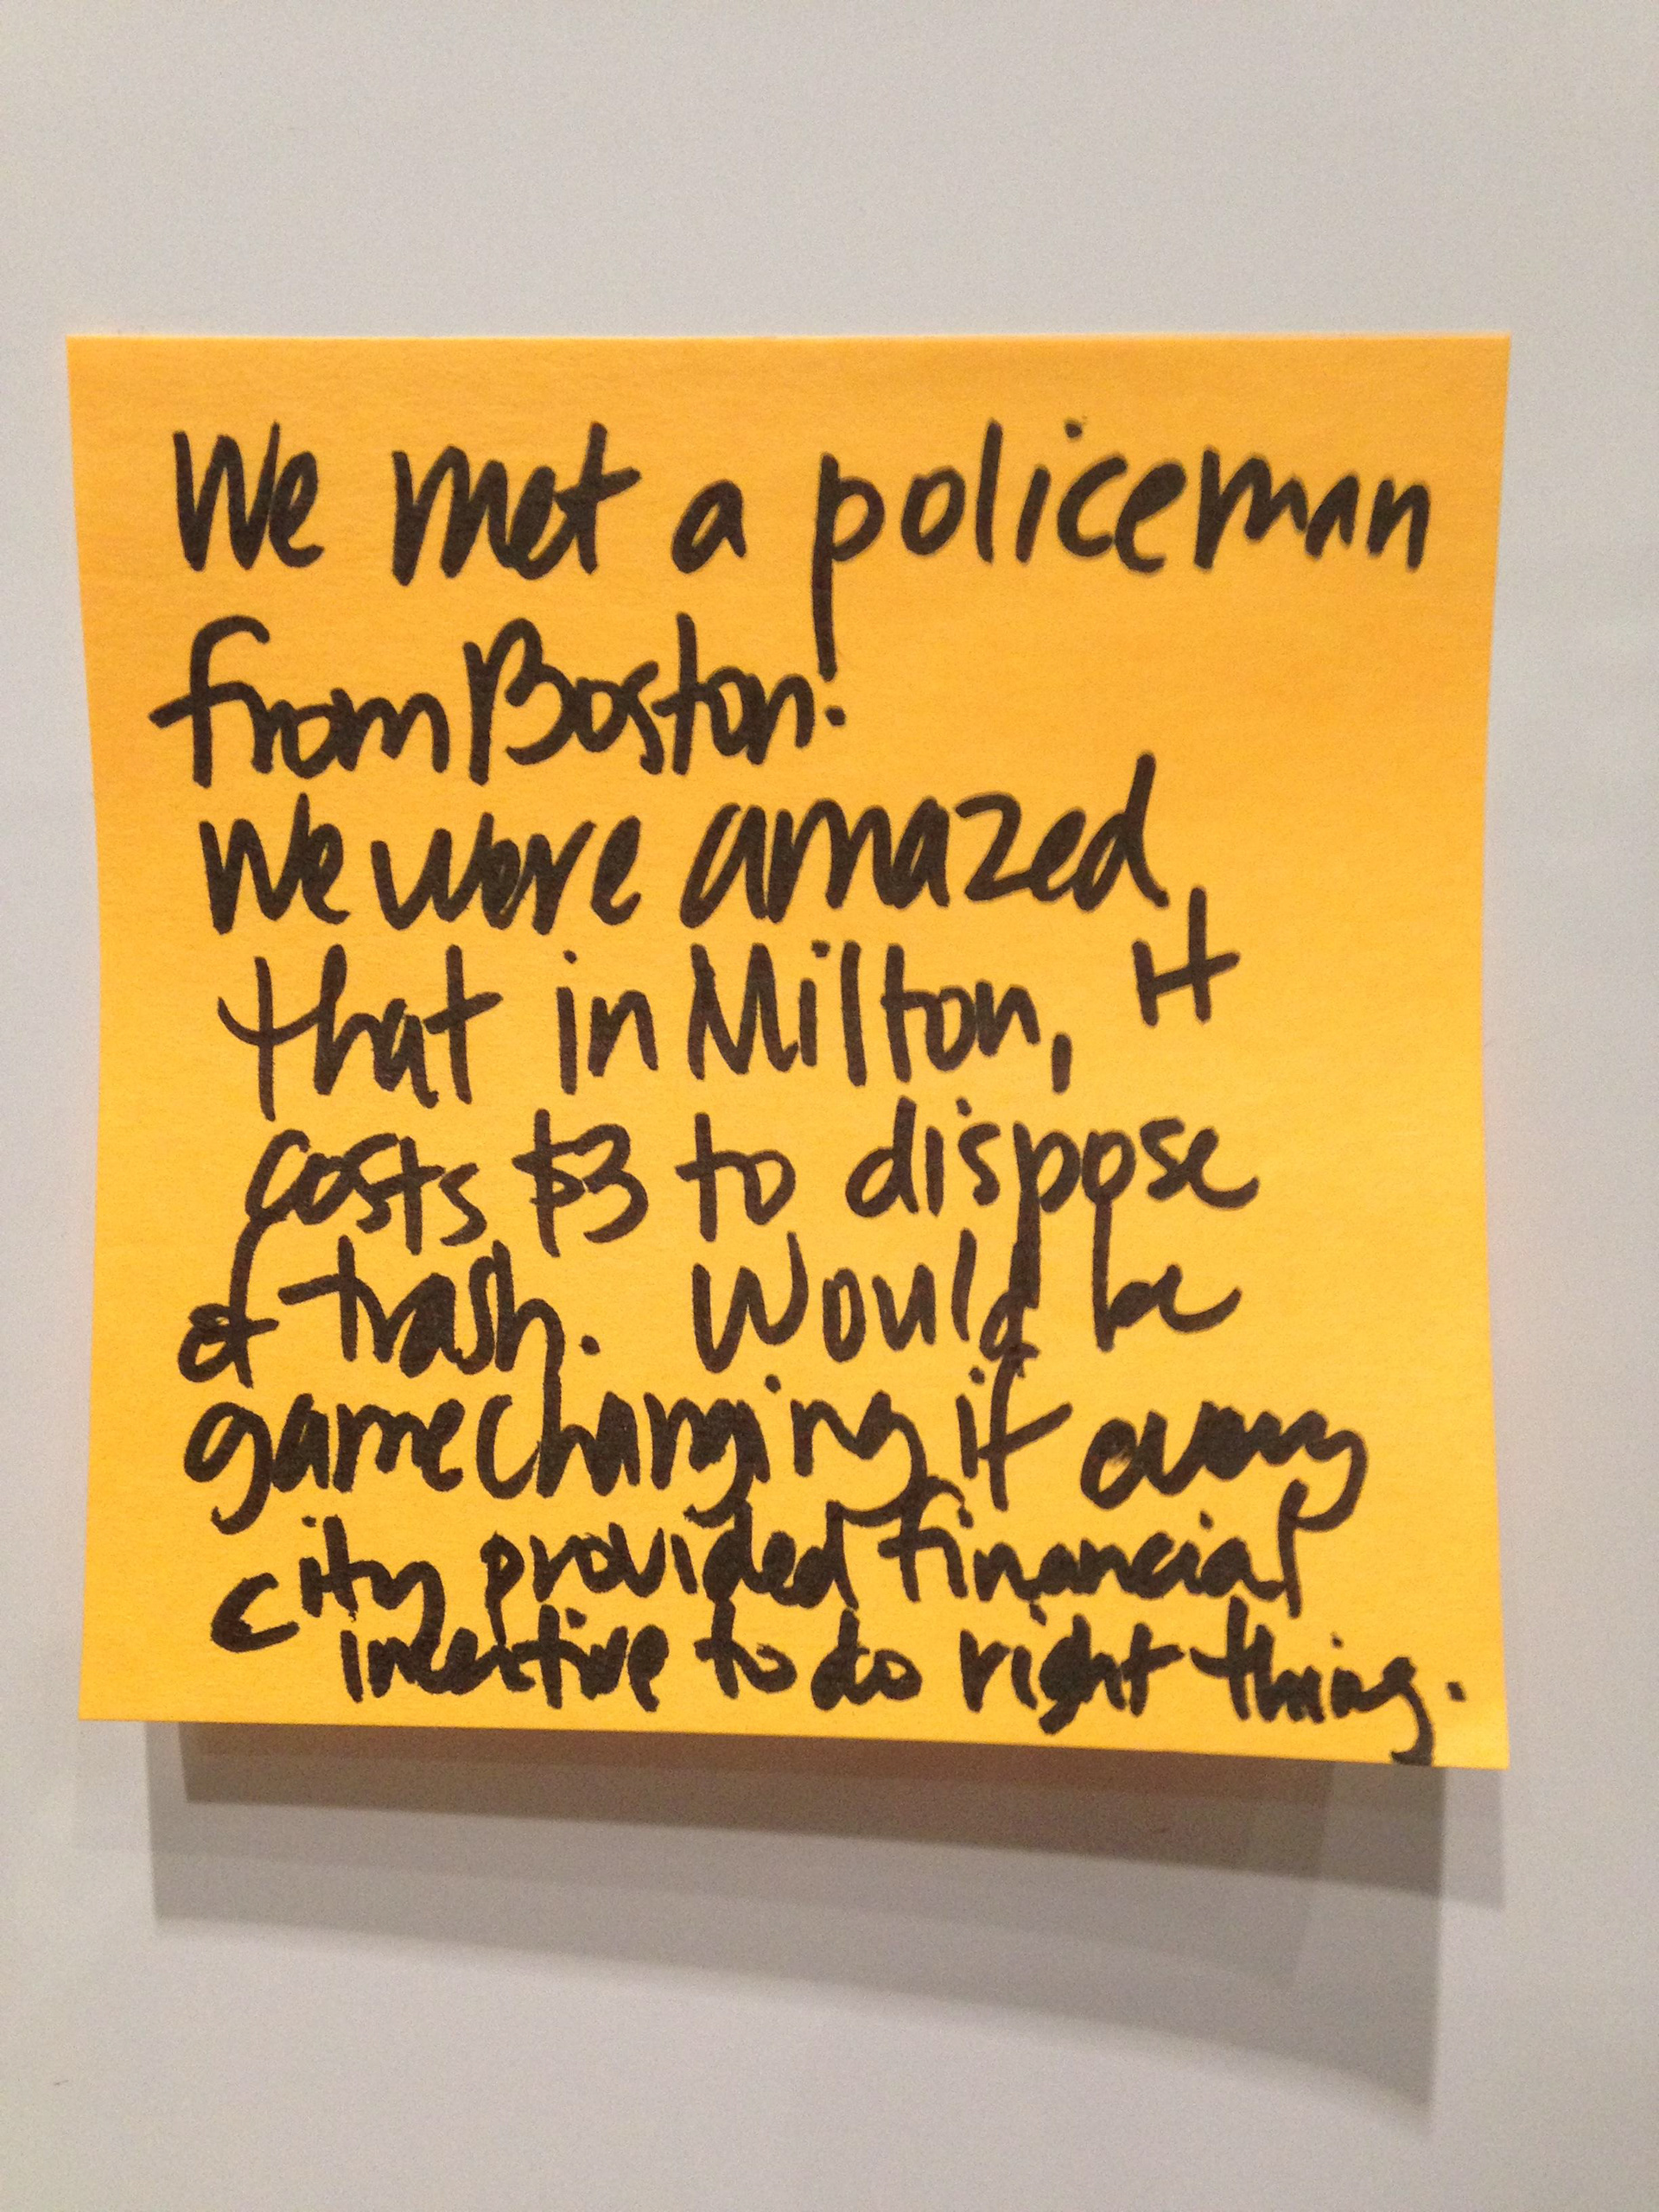 We met a policeman
from Boston.
We were amazed
that in Milton, it
costs $3 to dispose
of trash. Would be
gamechanging if every
city provided financial
incentive to do right thing.